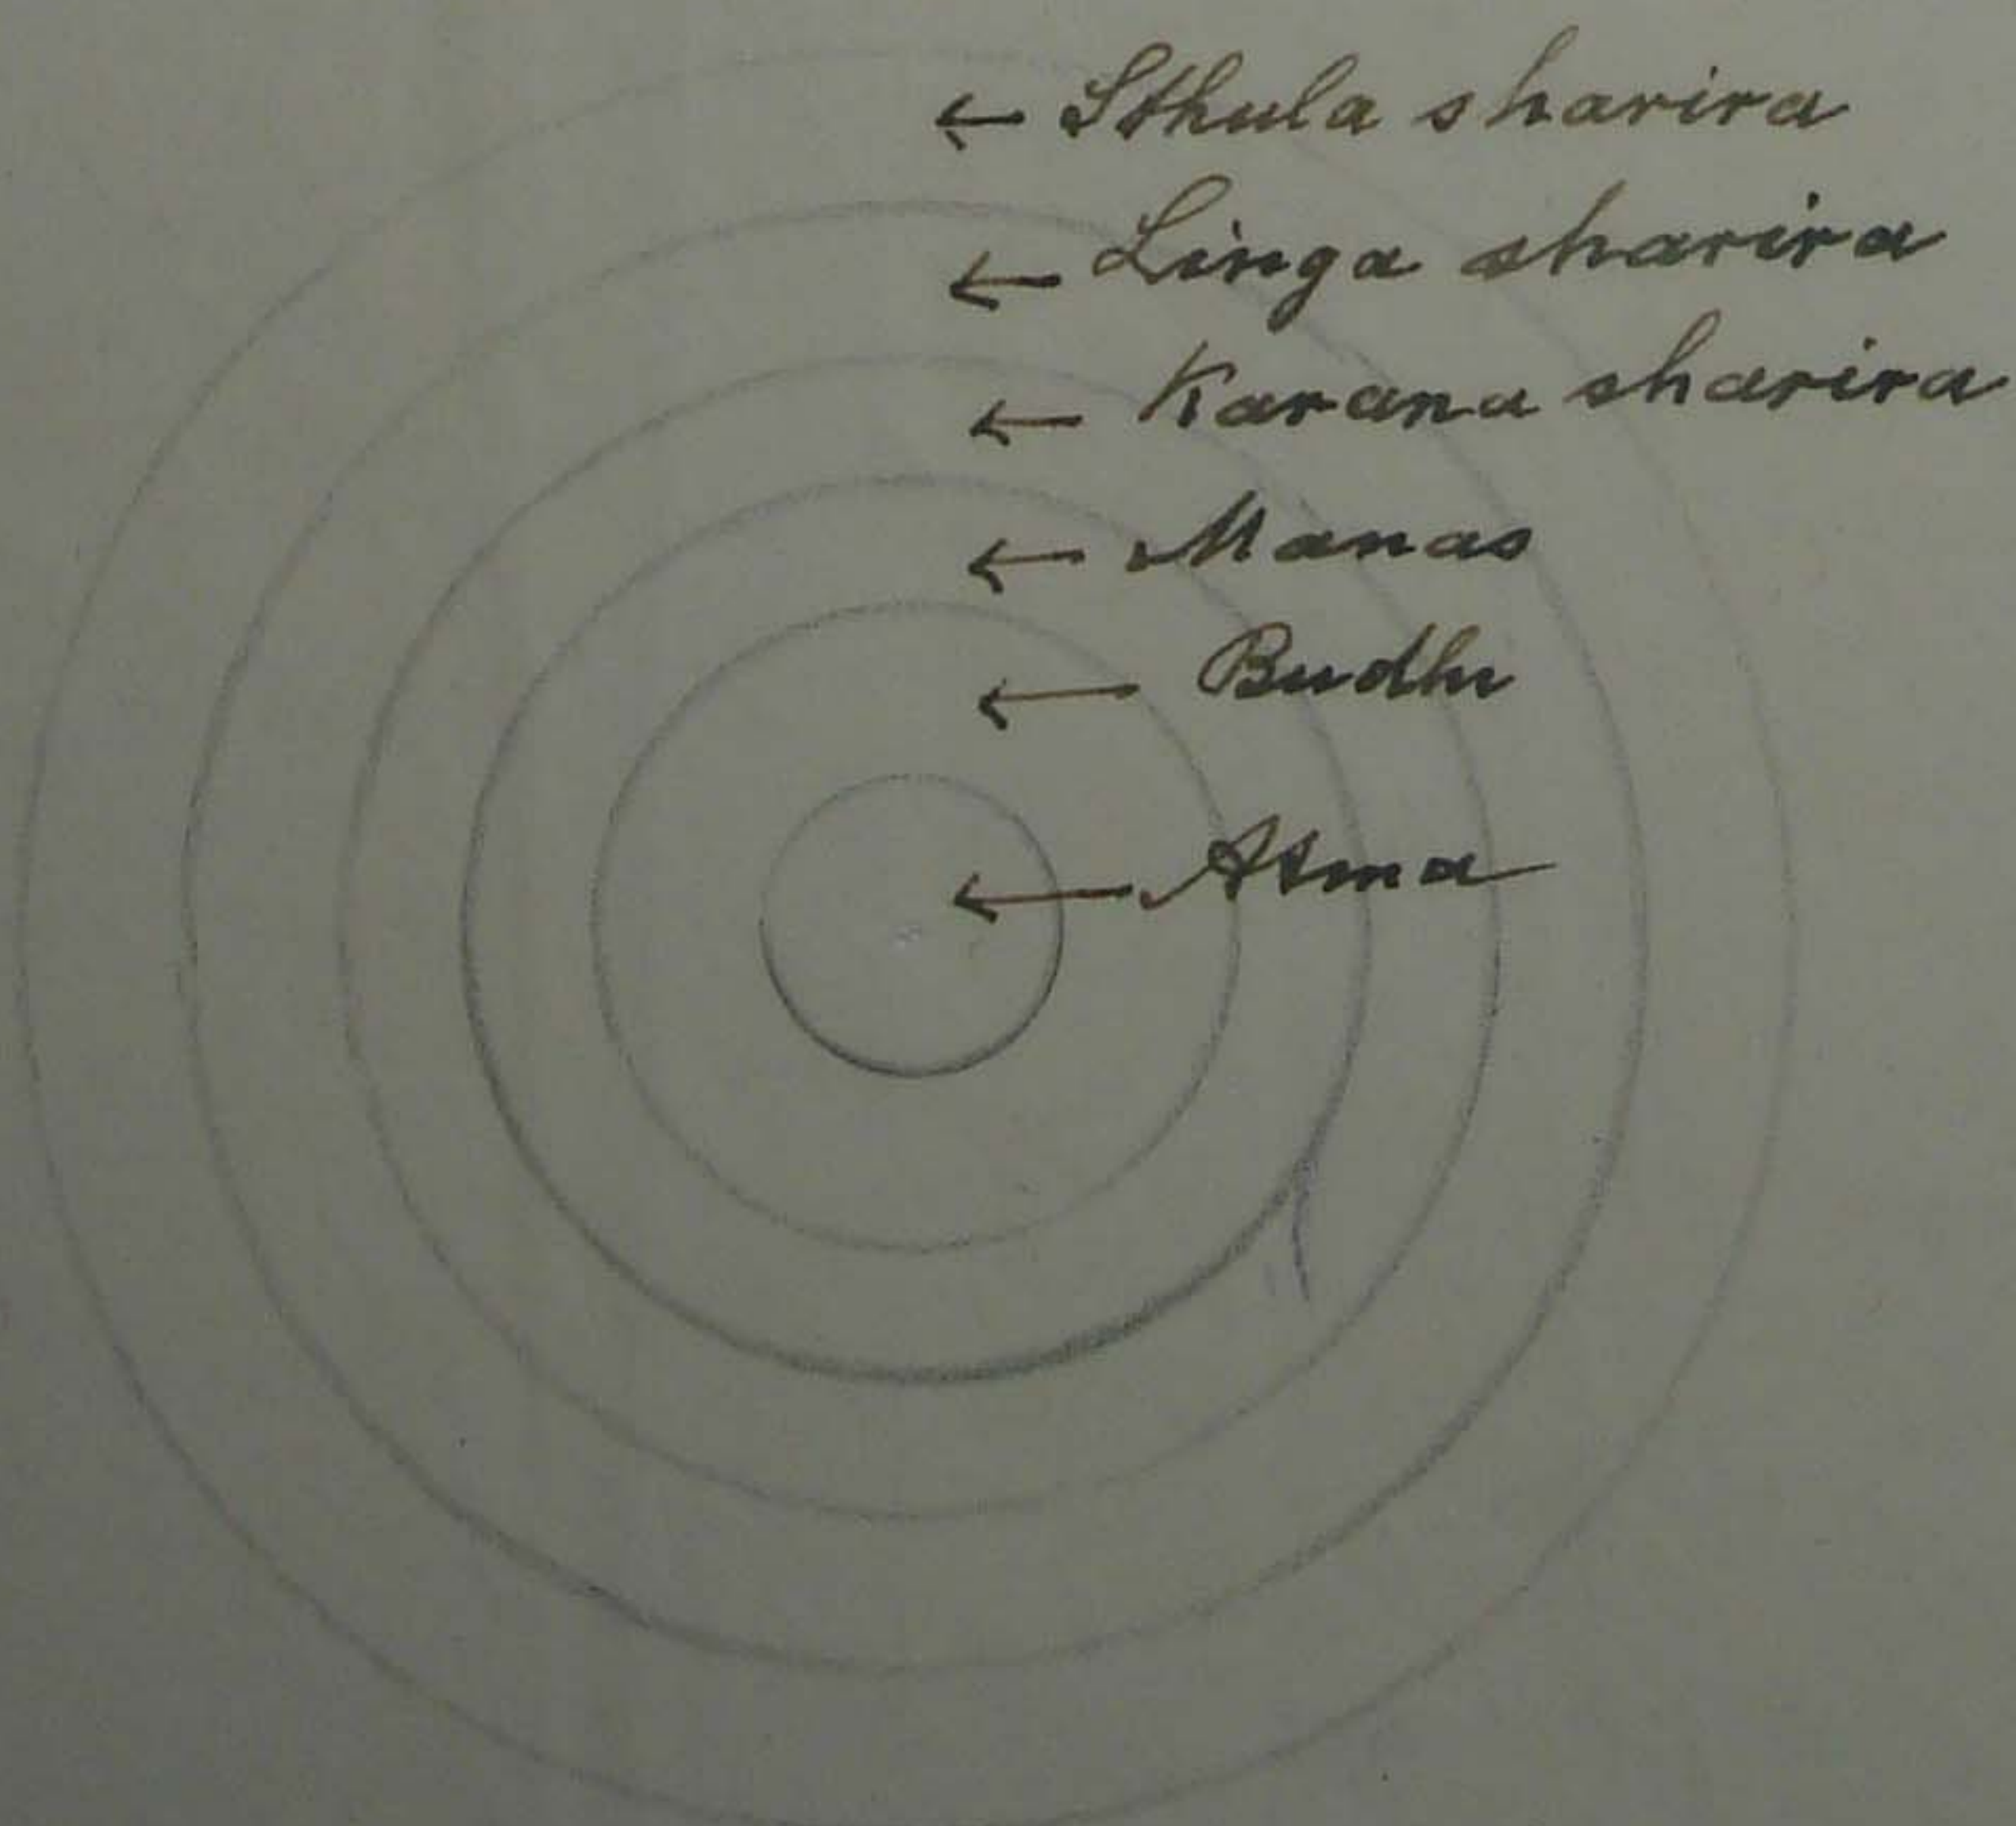 ← Sthula sharira
← Linga sharira
← Karana sharira
← Manas
← Budhi
← Atma